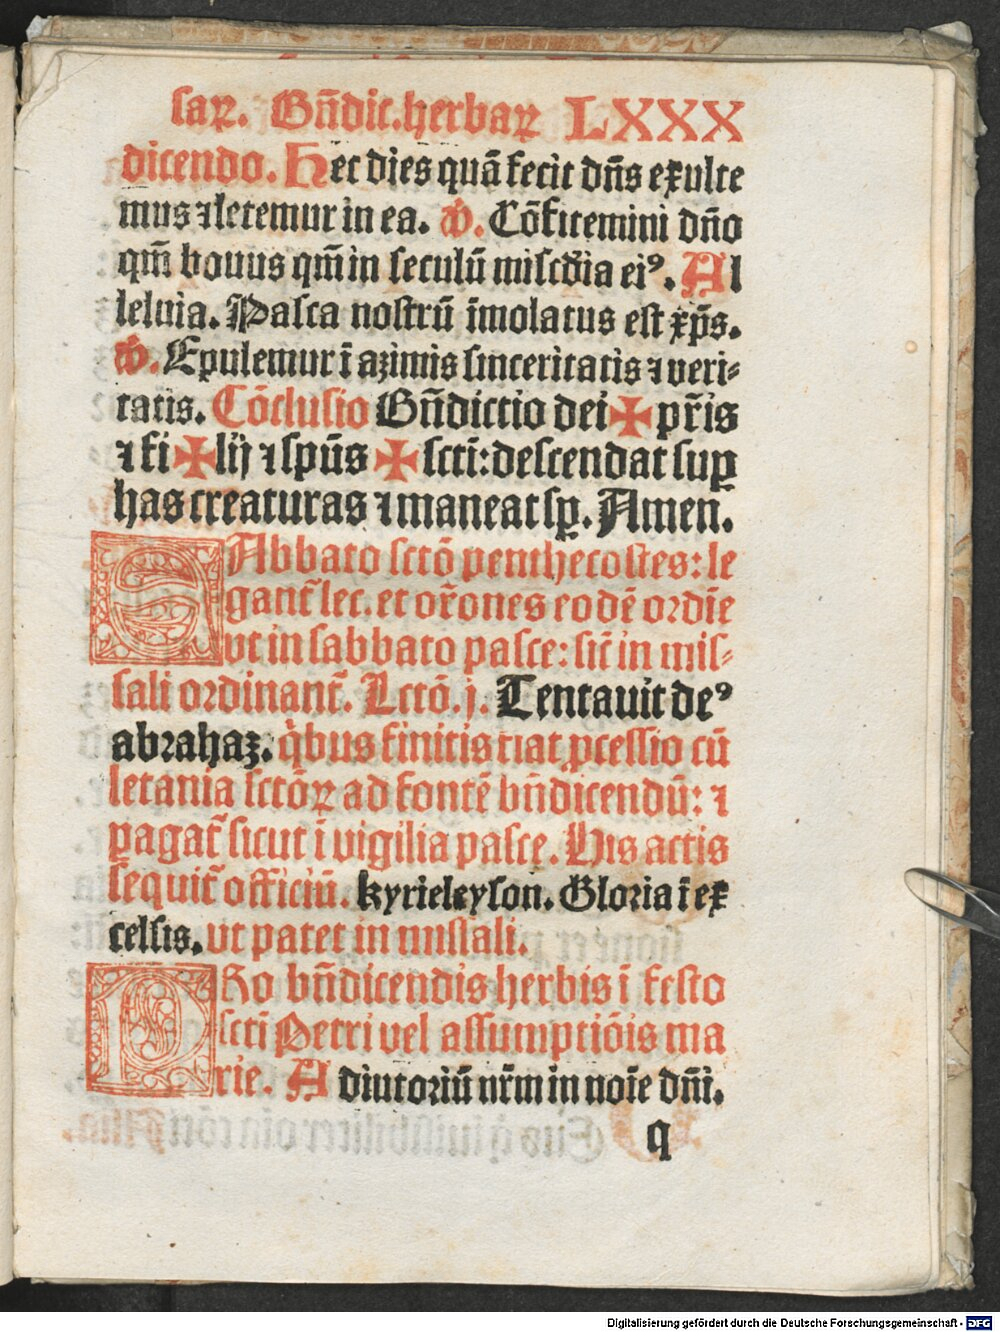 saꝝ. Bn̄dic. herbaꝝ LXXX
dicendo. Hec dies quā fecit dn̄s exulte
mus ⁊ letemur in ea. ℣. Cōfitemini dn̄o
qm̄ bonus qm̄ in seculū miscd̄ia eiꝰ. Al
leluia. Pasca nostrū īmolatus est xp̄s.
℣. Epulemur ī azimis sinceritatis ⁊ veri⸗
tatis. Cōclusio Bn̄dictio dei ✠ pr̄is
⁊ fi ✠ lij ⁊ spūs ✠ scti: descendat suꝑ
has creaturas ⁊ maneat sꝑ. Amen.
SAbbato sctō penthecostes: le
gant᷑ lec. et or̄ones eodē ordīe
vt in sabbato pasce: sic̄ in mis⸗
sali ordinant᷑. Lctō. j. Tentauit deꝰ
abrahaꝫ. qͥbus finitis fiat ꝓcessio cū
letania sctōꝝ ad fontē bn̄dicendū: ⁊
pagat᷑ sicut ī vigilia pasce. His actis
sequit᷑ officiū. kyrieleyson. Gloria ī ex
celsis. vt patet in missali.
PRo bn̄dicendis herbis ī festo
scti Petri vel assumptiōis ma
rie. Adiutoriū nr̄m in noīe dn̄i.
q
Digitalisierung gefördert durch die Deutsche Forschungsgemeinschaft - DFG